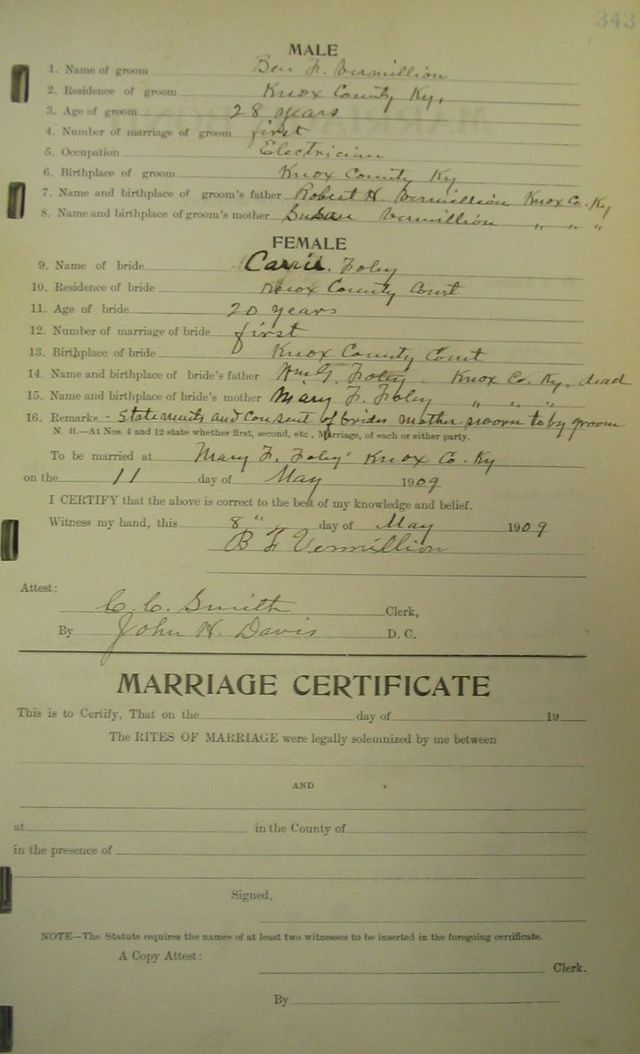 343
MALE
1. Name of groom Ben F. Vermillion
2. Residence of groom Knox County Ky,
3. Age of groom 28 years
4. Number of marriage of groom first
5. Occupation Electrician
6. Birthplace of groom Knox County Ky
7. Name and birthplace of groom's father Robert H. Vermillion Knox Co. Ky
8. Name and birthplace of groom's mother Susan Vermillion " " "
FEMALE
9. Name of bride Carrie. Foley
10. Residence of bride Knox County Court
11. Age of bride 20 years
12. Number of marriage of bride first
13. Birthplace of bride Knox County Court
14. Name and birthplace of bride's father Wm G. Foley Knox Co. Ky, dead
15. Name and birthplace of bride's mother Mary F. Foley " " "
16. Remarks - Statements and consent of brides mother sworn to by groom
N. B.—At Nos. 4 and 12 state whether first, second, etc, Marriage, of each or either party.
To be married at Mary F. Foley' Knox Co. Ky
on the 11 day of May 1909
I CERTIFY that the above is correct to the best of my knowledge and belief.
Witness my hand, this 8" day of May 1909
B F Vermillion
Attest:
C. C. Smith Clerk,
By John H. Davis D. C.
MARRIAGE CERTIFICATE
This is to Certify, That on the day of 19
The RITES OF MARRIAGE were legally solemnized by me between
AND
at in the County of
in the presence of
Signed,
NOTE—The Statute requires the names of at least two witnesses to be inserted in the foregoing certificate.
A Copy Attest:
Clerk.
By